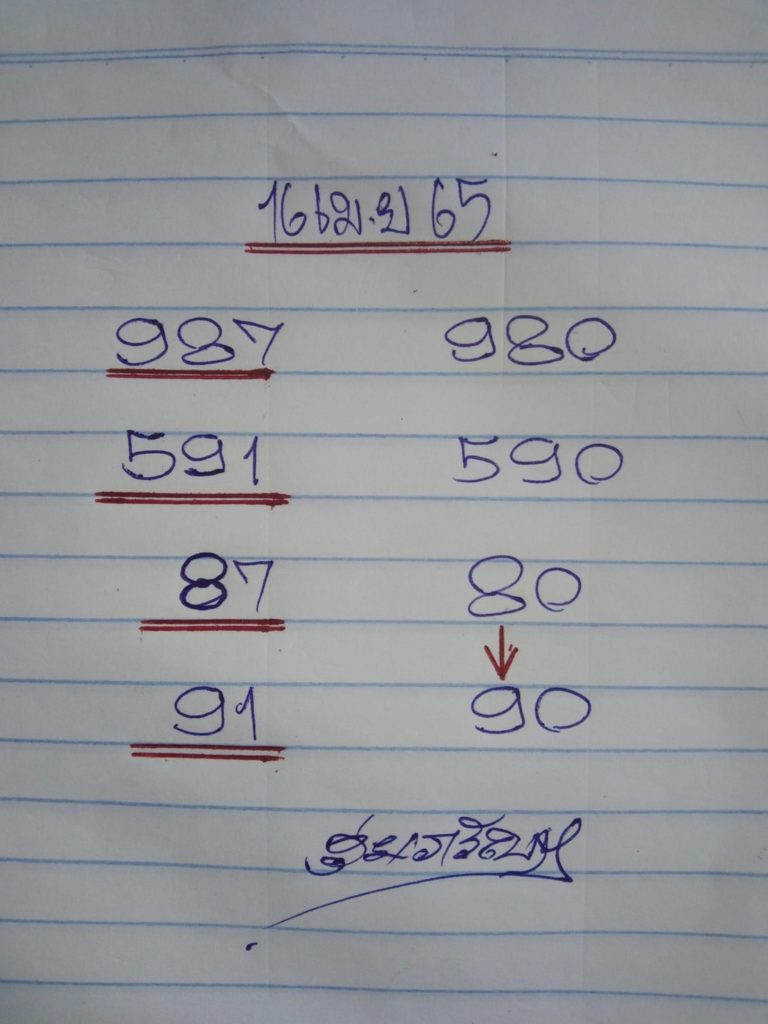 16 เม.ย 65
987 980
591 590
87 80
91 90